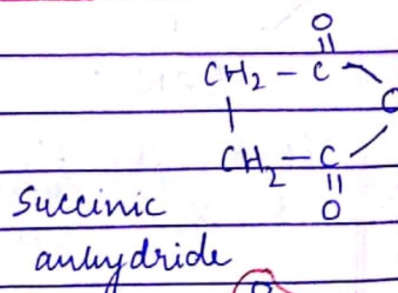 O
||
CH₂ – C
|
CH₂ – C
||
O
Succinic
anhydride